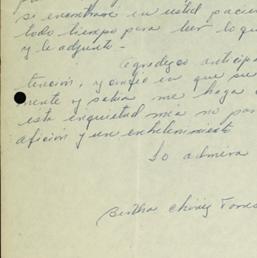 se encontrara en usted pacien
todo tiempo para leer lo qu
y le adjunto.-
Agradezco anticipa
tención, y confío en que su
mente y sabia me haga
esta inquietud mía no pa
afición y un
Lo admira
Bertha Chávez Torres